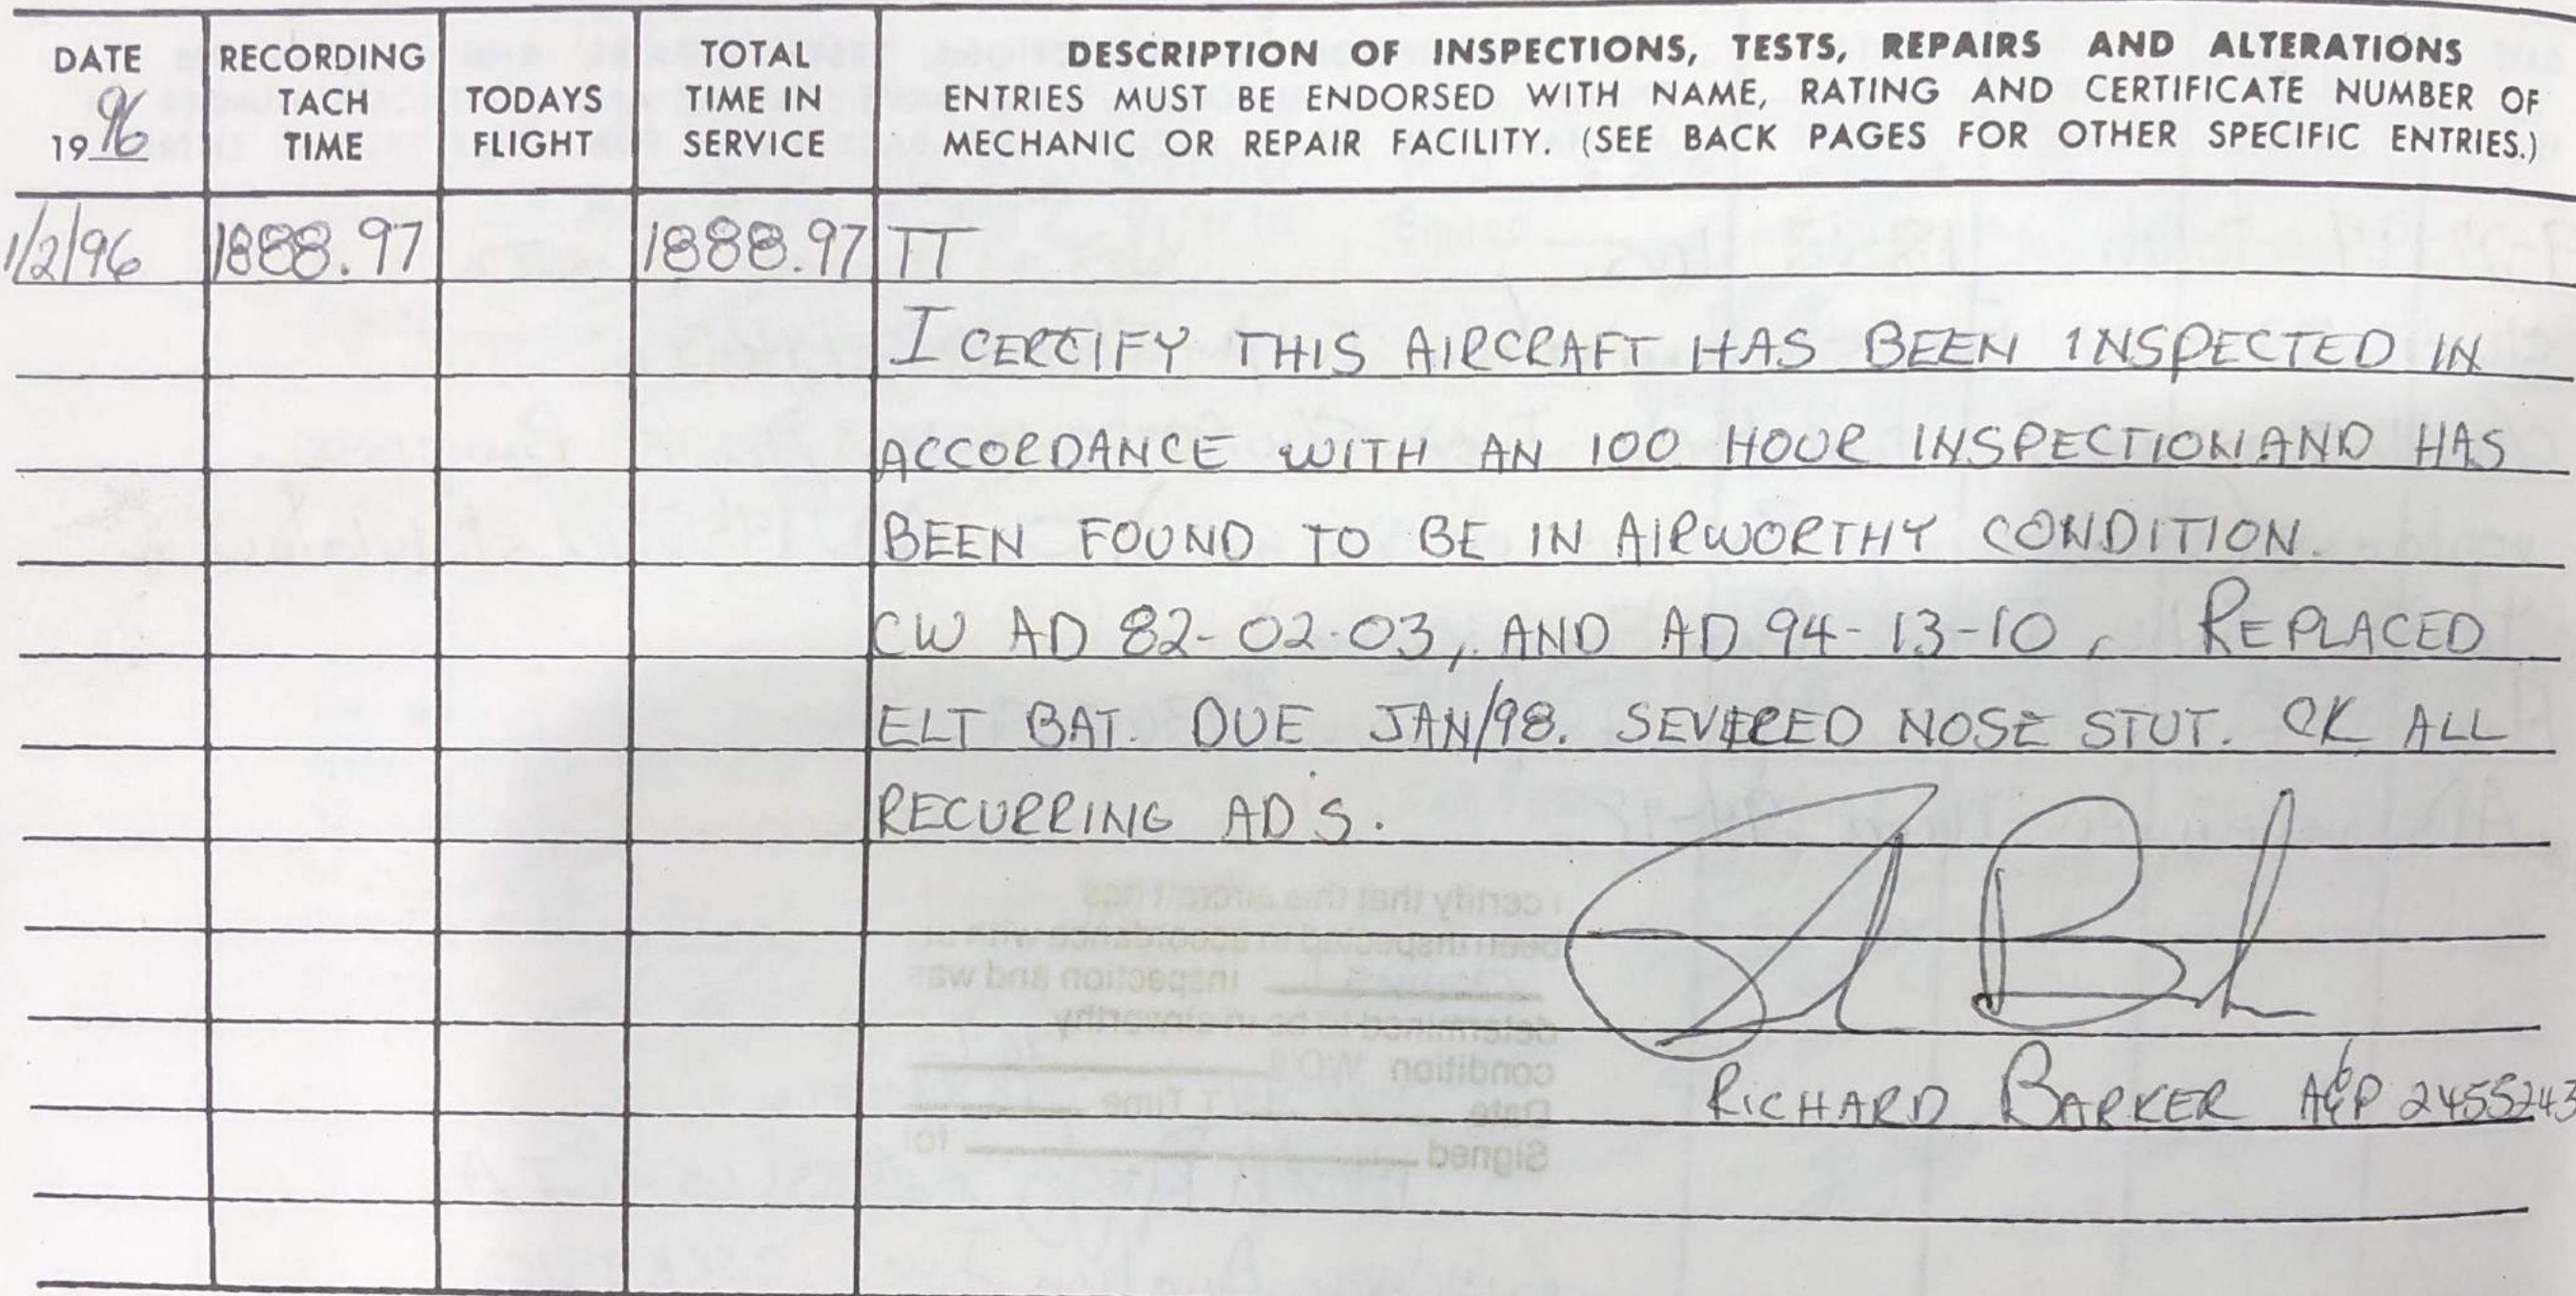 DATE RECORDING TODAYS TOTAL DESCRIPTION OF INSPECTIONS, TESTS, REPAIRS AND ALTERATIONS
TACH FLIGHT TIME IN ENTRIES MUST BE ENDORSED WITH NAME, RATING AND CERTIFICATE NUMBER OF
1996 TIME SERVICE MECHANIC OR REPAIR FACILITY. (SEE BACK PAGES FOR OTHER SPECIFIC ENTRIES.)
1/2/96 1888.97 1888.97 TT
I CERTIFY THIS AIRCRAFT HAS BEEN INSPECTED IN
ACCORDANCE WITH AN 100 HOUR INSPECTION AND HAS
BEEN FOUND TO BE IN AIRWORTHY CONDITION.
CW AD 82-02-03, AND AD 94-13-10, REPLACED
ELT BAT. DUE JAN/98. SEVERED NOSE STUT. CK ALL
RECURRING ADS.
RICHARD BARKER A&P 2455243